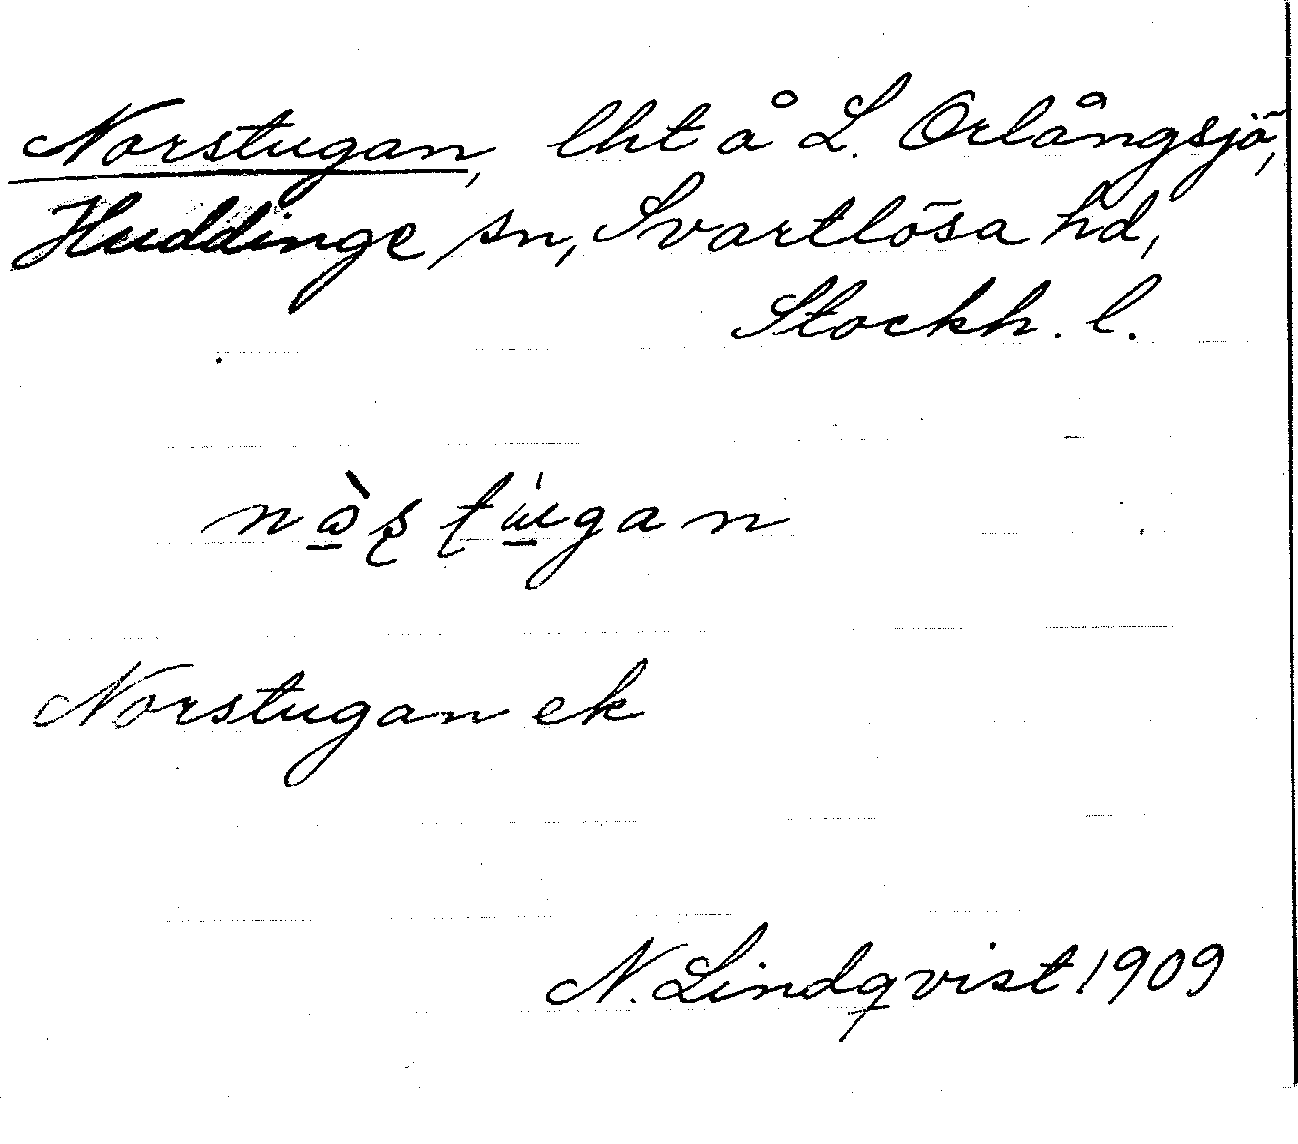 Norstugan, lht å L. Orlångsjö,
Huddinge sn, Svartlösa hd,
Stockh. l.
Norstugan ek
N. Lindqvist 1909